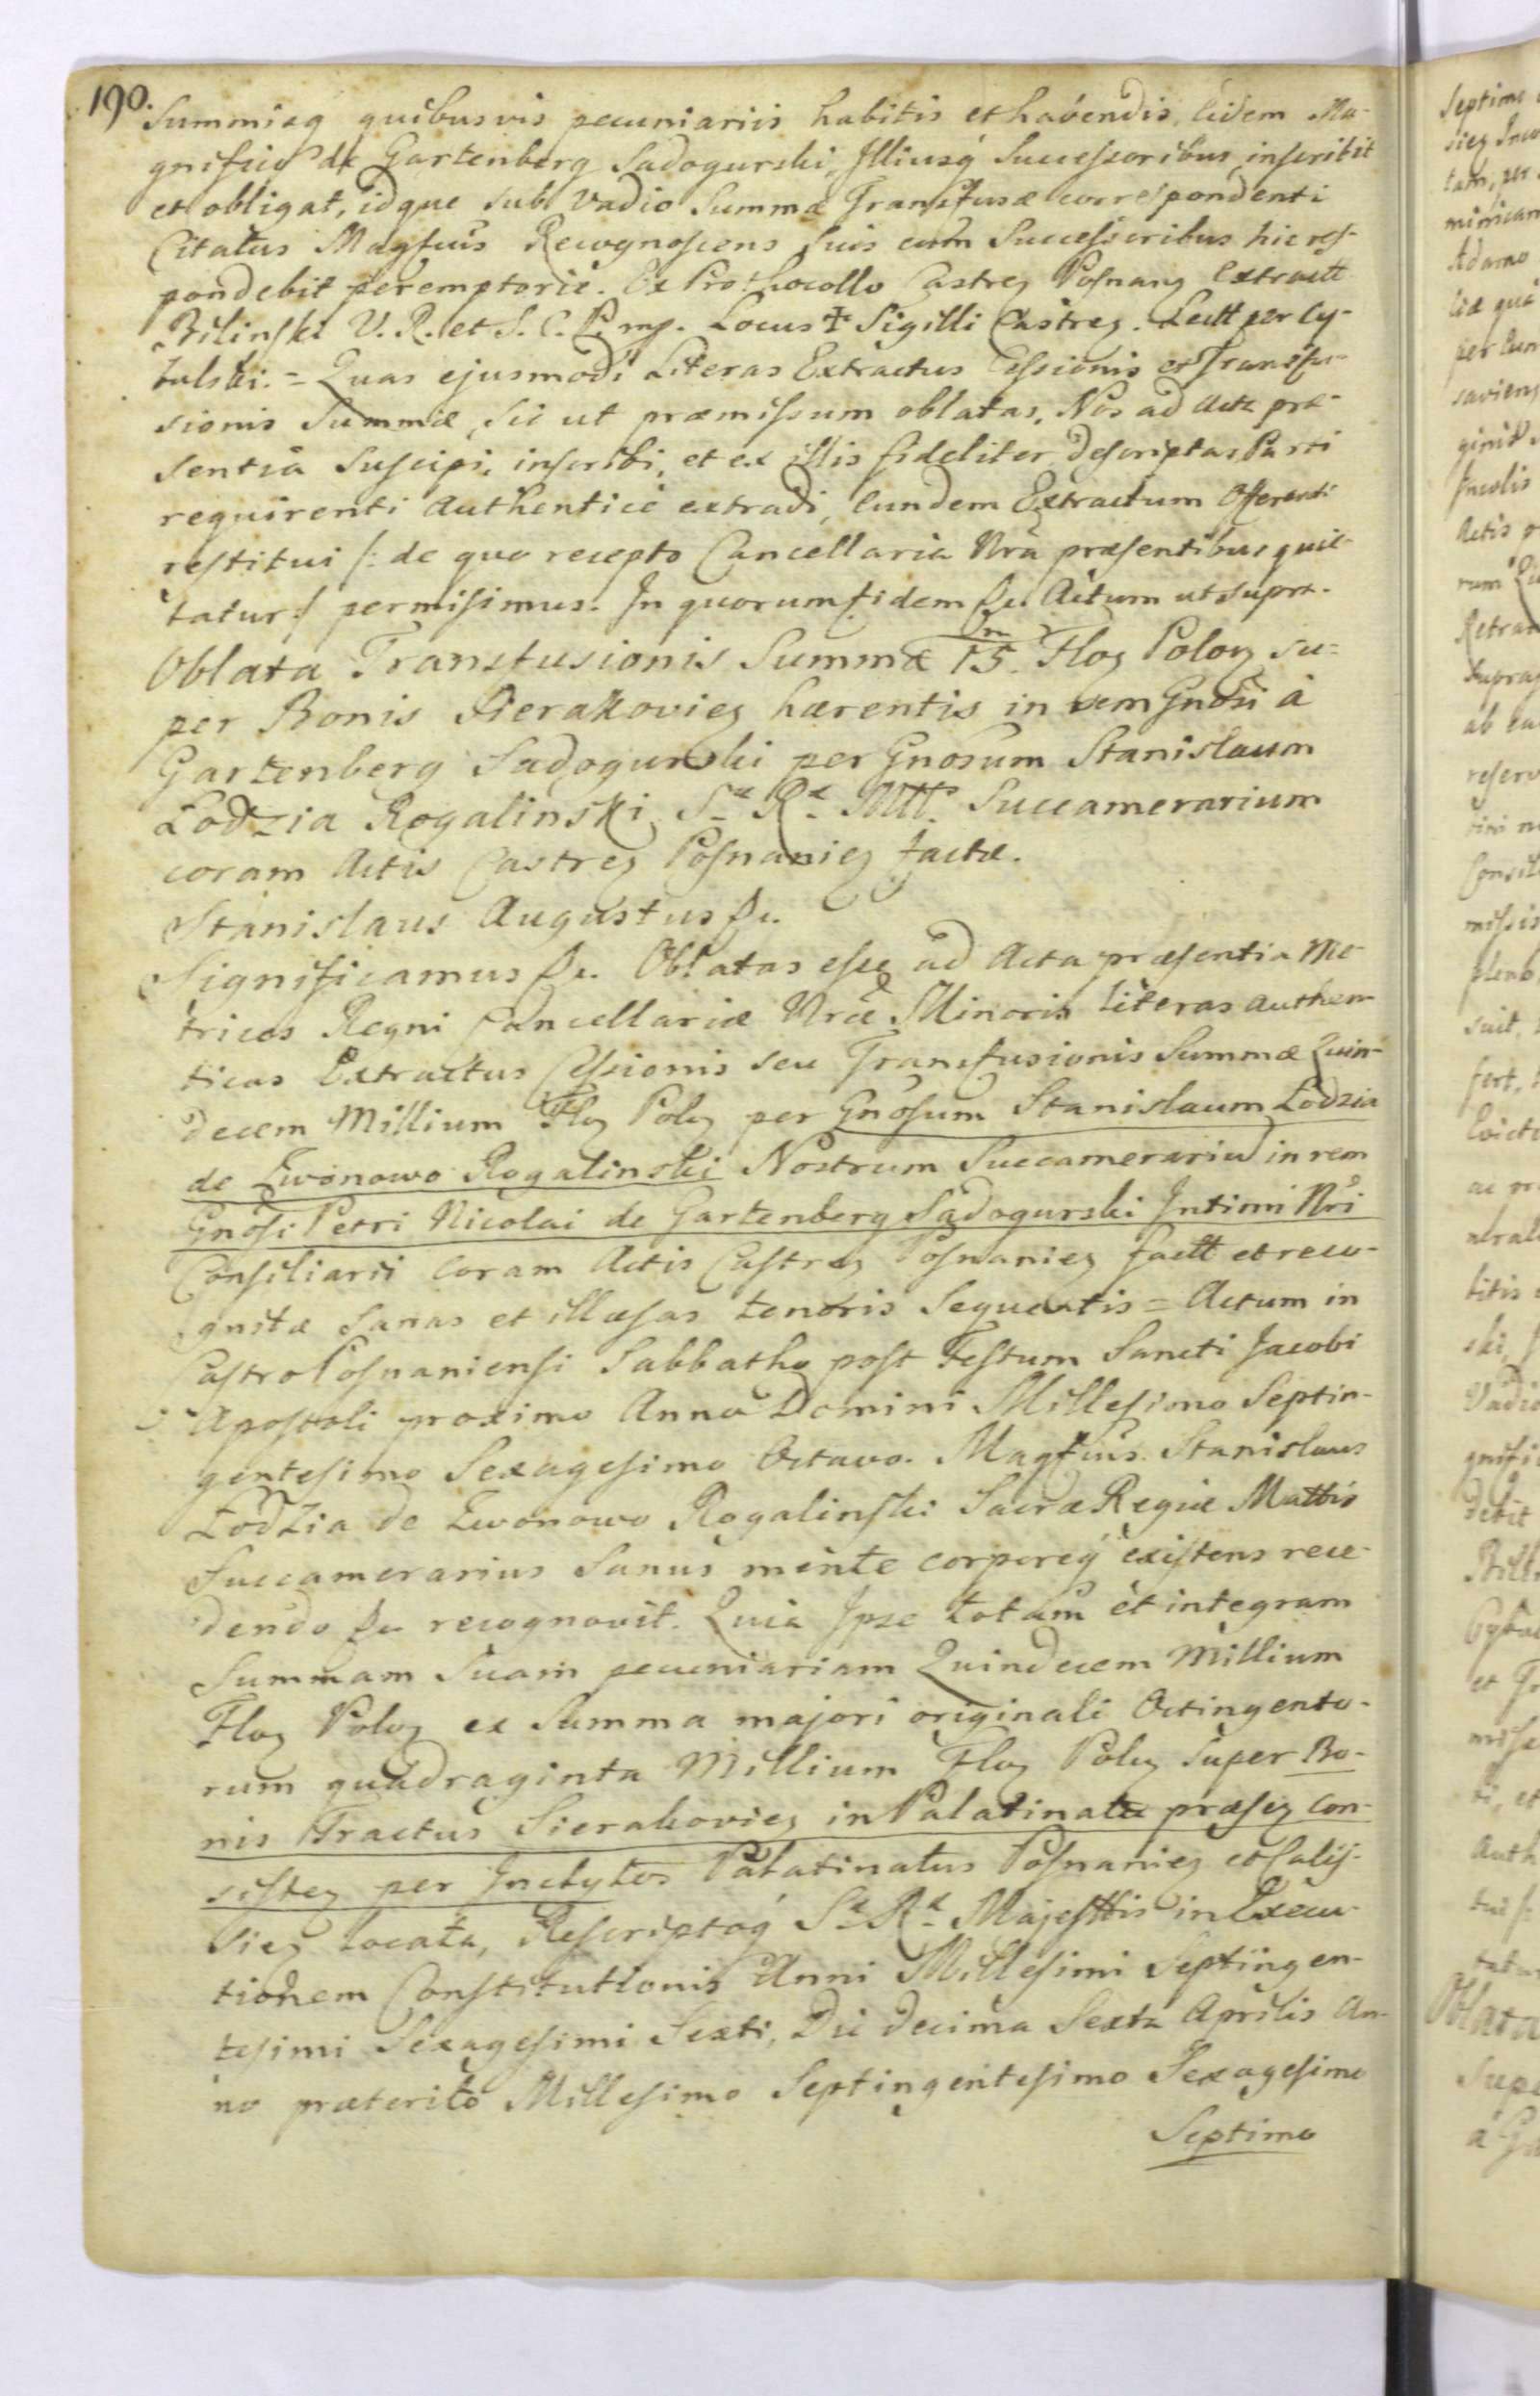 190.
Summisq quibusvis pecuniariis habitis et habendis, Eidem Ma-
gnifico de Gartenberg Sadogurski, Illiusq Successoribus inscribit
et obligat, idque sub Vadio Summæ Transfusæ correspondenti
Citatus Magfcus Recognoscens suis cum Successoribus hic res-
pondebit peremptorie. Ex Prothocollo Castrez Posnanz Extractt
Bilinski V. R. et S. C. P. mp. Locus ✝ Sigilli Castrez. Lectt per Cy-
bulski. = Quas ejusmodi Literas Extractus Cessionis et Transfu-
sionis Summæ, sic ut præmissum oblatas, Nos ad Acta præ-
sentia suscipi, inscribi, et ex illis fideliter descriptas Parti
requirenti authentice extradi, eundem Extractum Offerenti
restitui /: de quo recepto Cancellaria Nra præsentibus quie-
tatur :/ permisimus. In quorum fidem &c. Actum ut supra.
Oblata Transfusionis Summæ 15.m Floz Poloz su=
per Bonis Sierakoviez hærentis in rem Gnosi à
Gartenberg Sadogurski per Gnosum Stanislaum
Lodzia Rogalinski Sæ Ræ Mtts Succamerarium
coram Actis Castrez Posnaniez factæ.
Stanislaus Augustus &c.
Significamus &c. Oblatas esse ad Acta præsentia Me-
trices Regni Cancellariæ Nræ Minoris Literas authen-
ticas Extractus Cessionis seu Transfusionis Summæ Quin-
decem Millium Floz Poloz per Gnosum Stanislaum Lodzia
de Zwonowo Rogalinski Nostrum Succamerariu in rem
Gnosi Petri Nicolai de Gartenberg Sadogurski Intimi Nri
Consiliarii Coram Actis Castrez Posnaniez factt et reco-
gnitæ sanas et illæsas tenoris sequentis = Actum in
Castro Posnaniensi Sabbatho post Festum Sancti Jacobi
Apostoli proximo Anno Domini Millesimo Septin-
gentesimo Sexagesimo Octavo. Magfcus Stanislaus
Lodzia de Zwonowo Rogalinski Sacræ Regiæ Mattis
Succamerarius sanus mente corporeq existens rece-
dendo &c recognovit. Quia Ipse totam et integram
Summam suam pecuniariam Quindecem Millium
Floz Poloz ex Summa majori originali Octingento-
rum quadraginta Millium Floz Poloz super Bo-
nis Tractus Sierakoviez in Palatinatu præsez con-
sistez per Inclytos Palatinatus Posnaniez et Calis-
siez locata, Rescriptoq Sæ Ræ Majesttis in Execu-
tionem Constitutionis Anni Millesimi Septingen-
tesimi Sexagesimi Sexti, Die decima Sexta Aprilis An-
no præterito Millesimo Septingentesimo Sexagesimo
Septimo